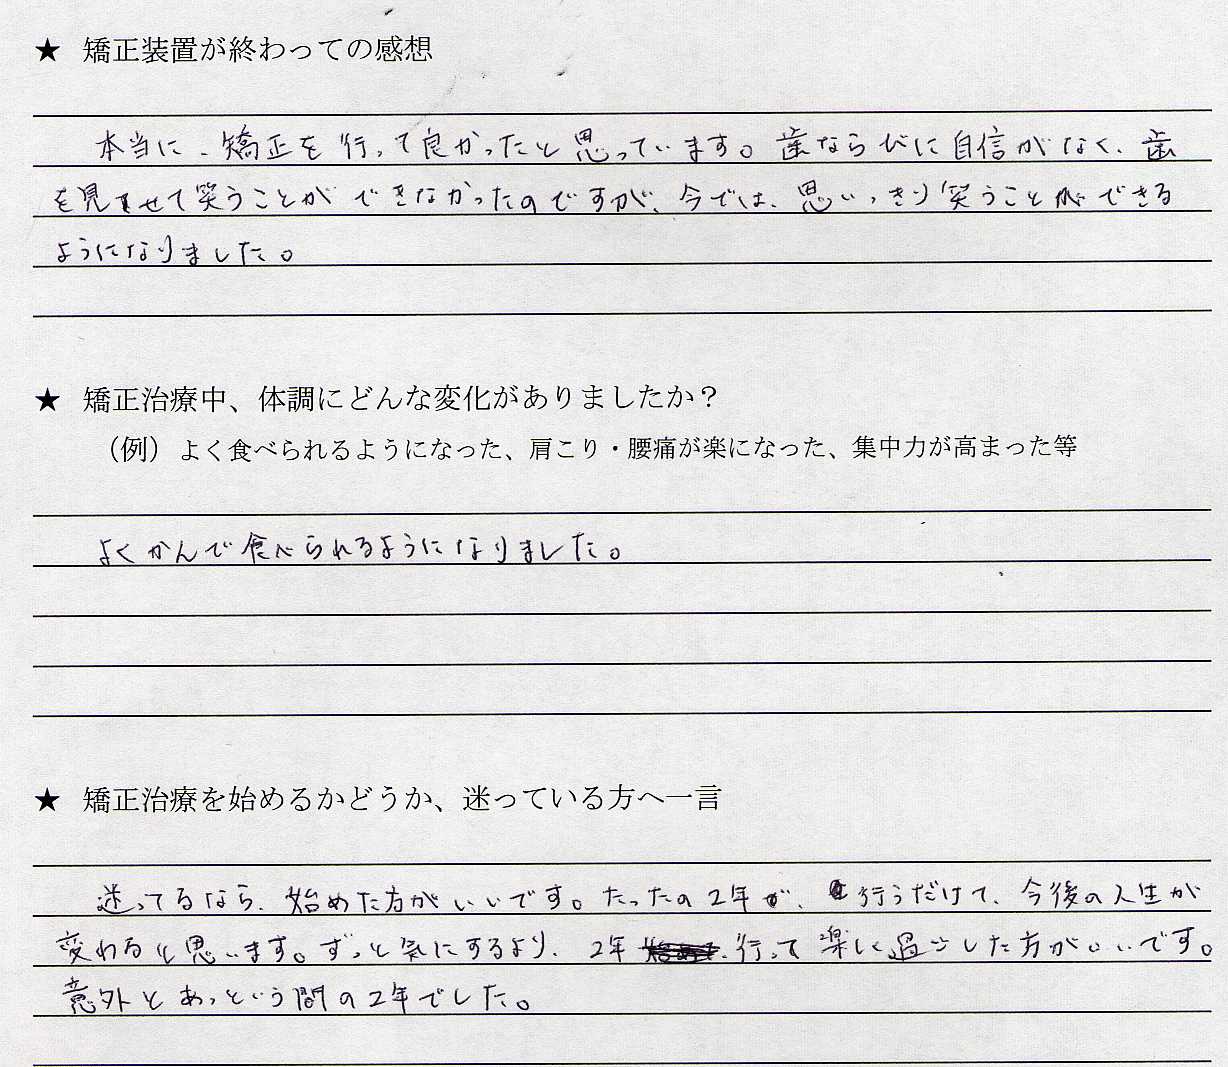 ★ 矯正装置が終わっての感想
本当に、矯正を行って良かったと思っています。歯ならびに自信がなく、歯
を見せて笑うことができなかったのですが、今では、思いっきり笑うことができる
ようになりました。
★ 矯正治療中、体調にどんな変化がありましたか？
（例）よく食べられるようになった、肩こり・腰痛が楽になった、集中力が高まった等
よくかんで食べられるようになりました。
★ 矯正治療を始めるかどうか、迷っている方へ一言
迷ってるなら、始めた方がいいです。たったの2年が、行うだけで、今後の人生が
変わると思います。ずっと気にするより、2年行って楽しく過ごした方がいいです。
意外とあっという間の2年でした。